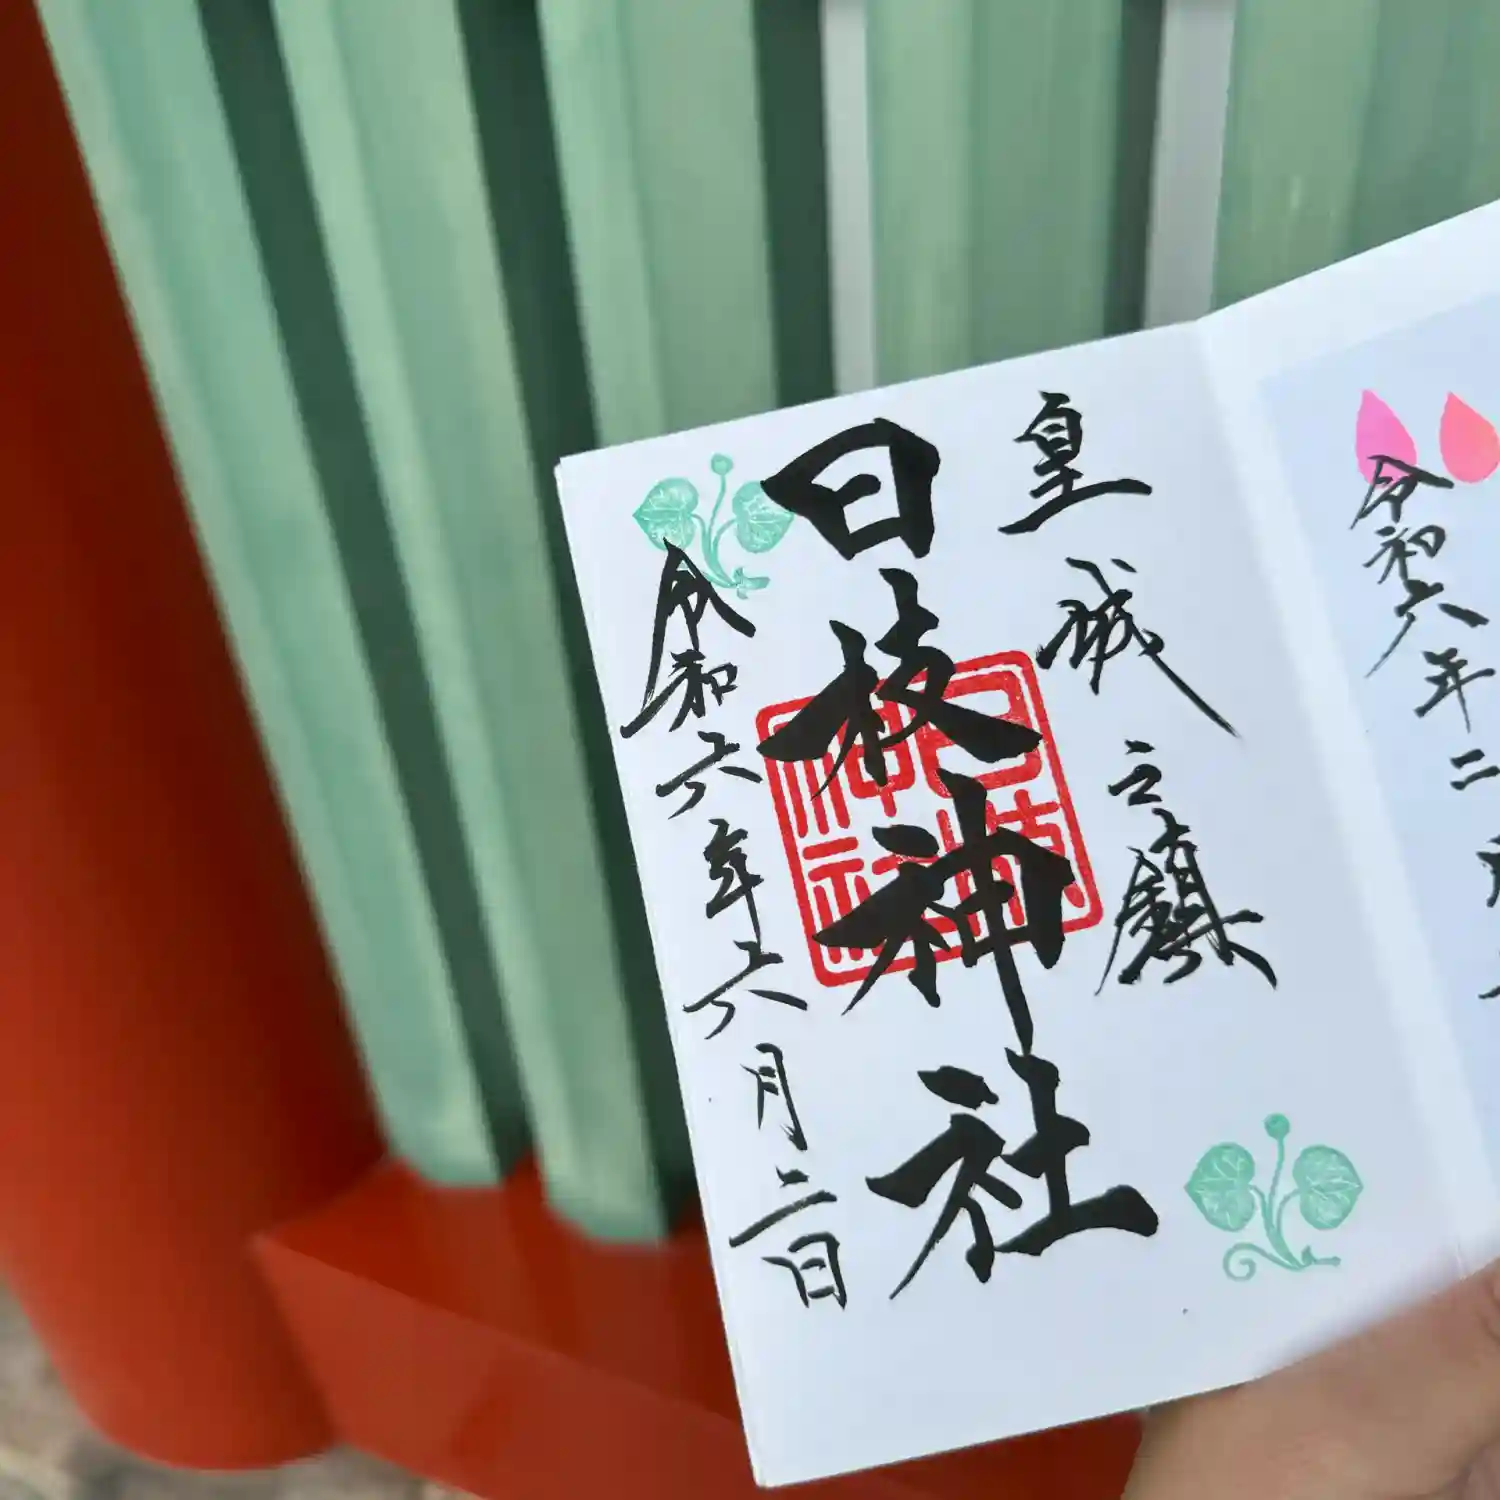 皇城之鎮
日枝神社
令和六年六月二日
日枝神社
令和六年二